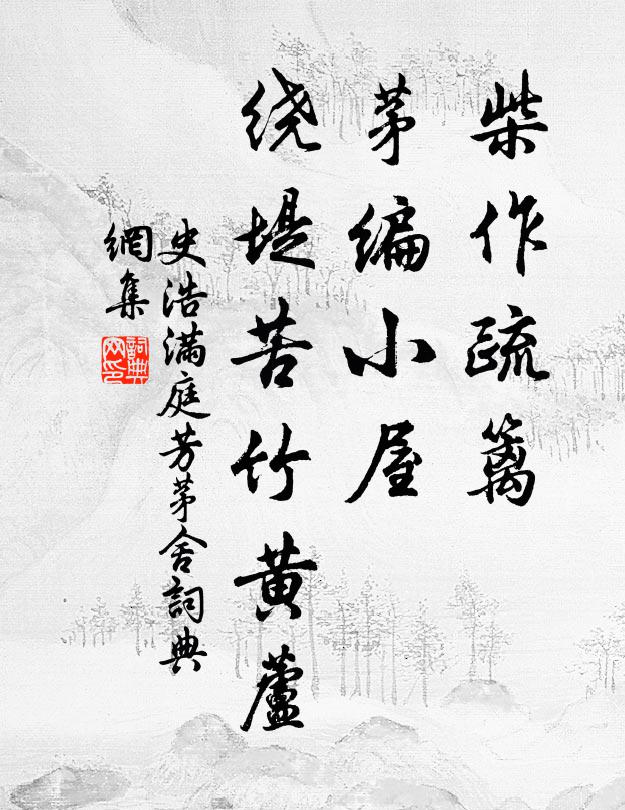 柴作疏篱
茅编小屋
绕堤苦竹黄蘆
史浩满庭芳茅舍詞典
網集
詞典
网印